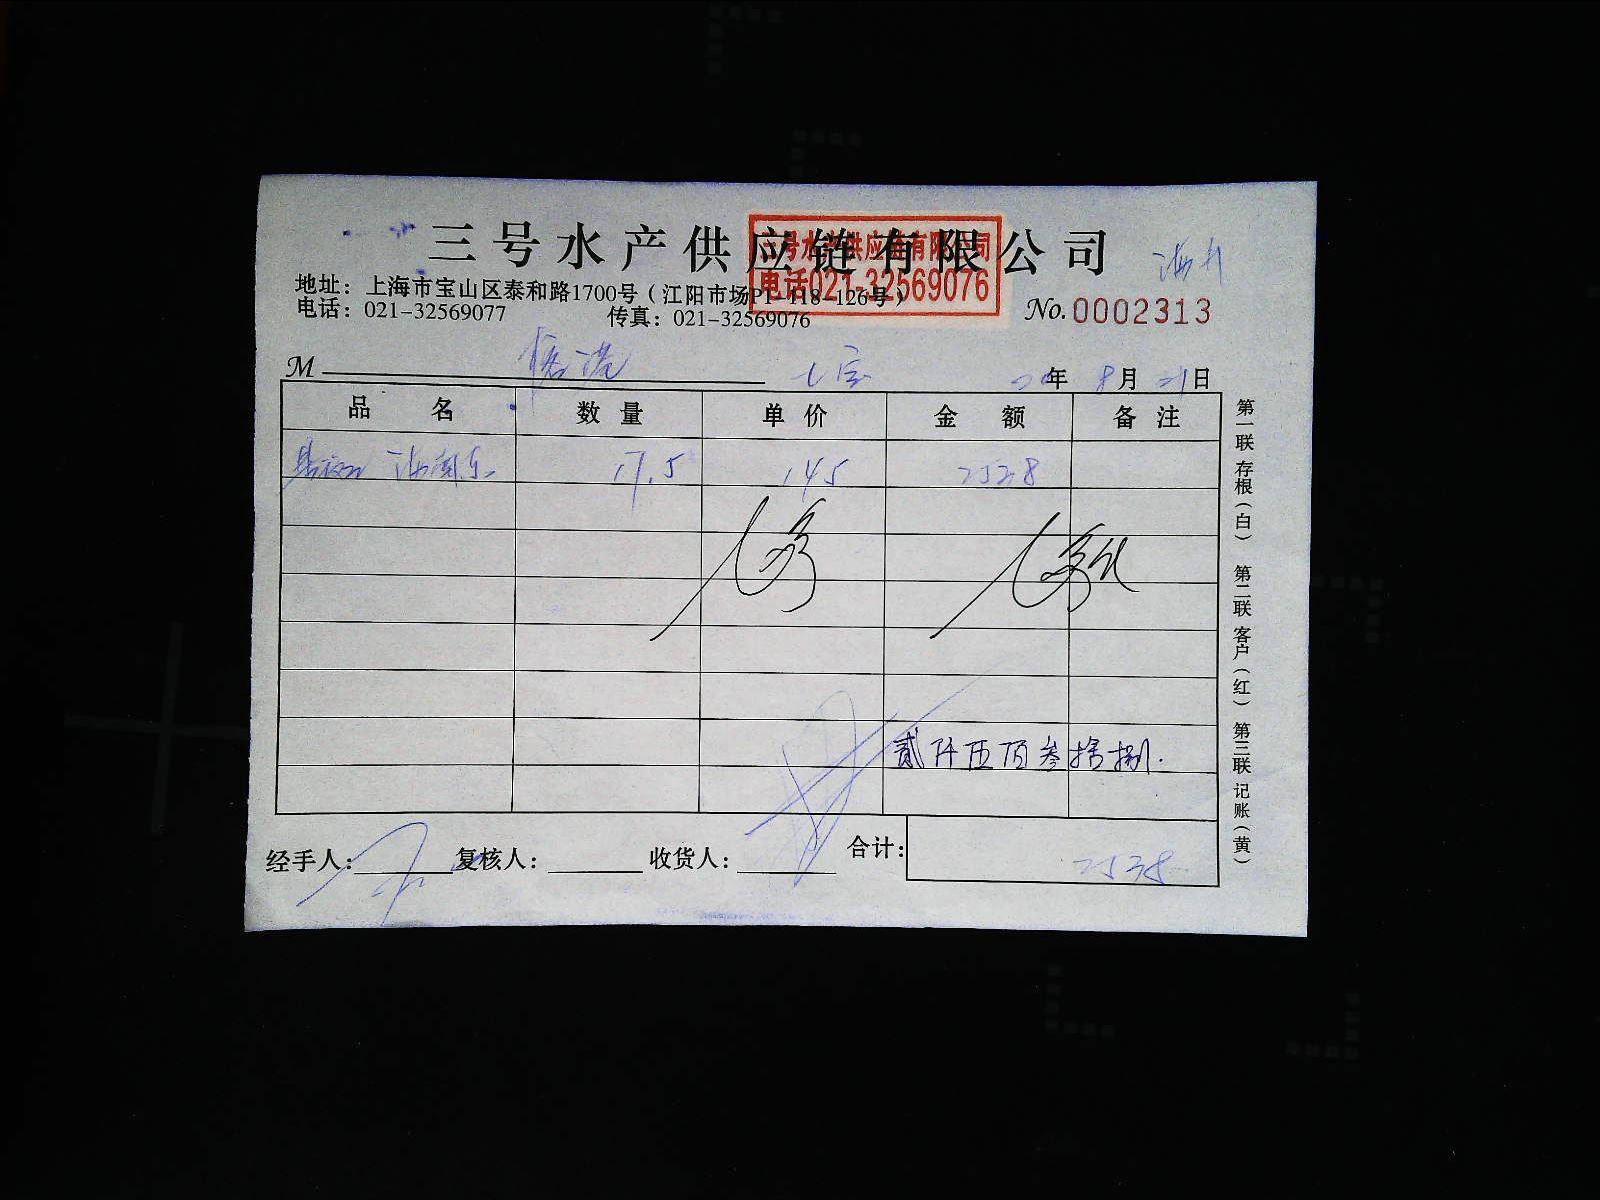 三号水产供应链有限公司
三号水产供应链有限公司
电话021-32569076
地址：上海市宝山区泰和路1700号（江阳市场P1-118-126号）
电话：021-32569077 传真：021-32569076
No.0002313
M 七宝 20年8月21日
品名 数量 单价 金额 备注
17.5 145 2538
贰仟伍佰叁拾捌.
经手人： 复核人： 收货人： 合计：2538
第一联 存根（白） 第二联 客户（红） 第三联 记账（黄）